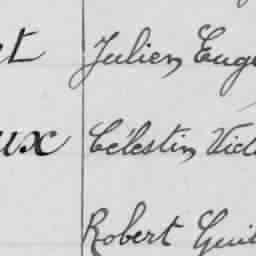 et Julien Eug
ux Célestin Vict
Robert Guil